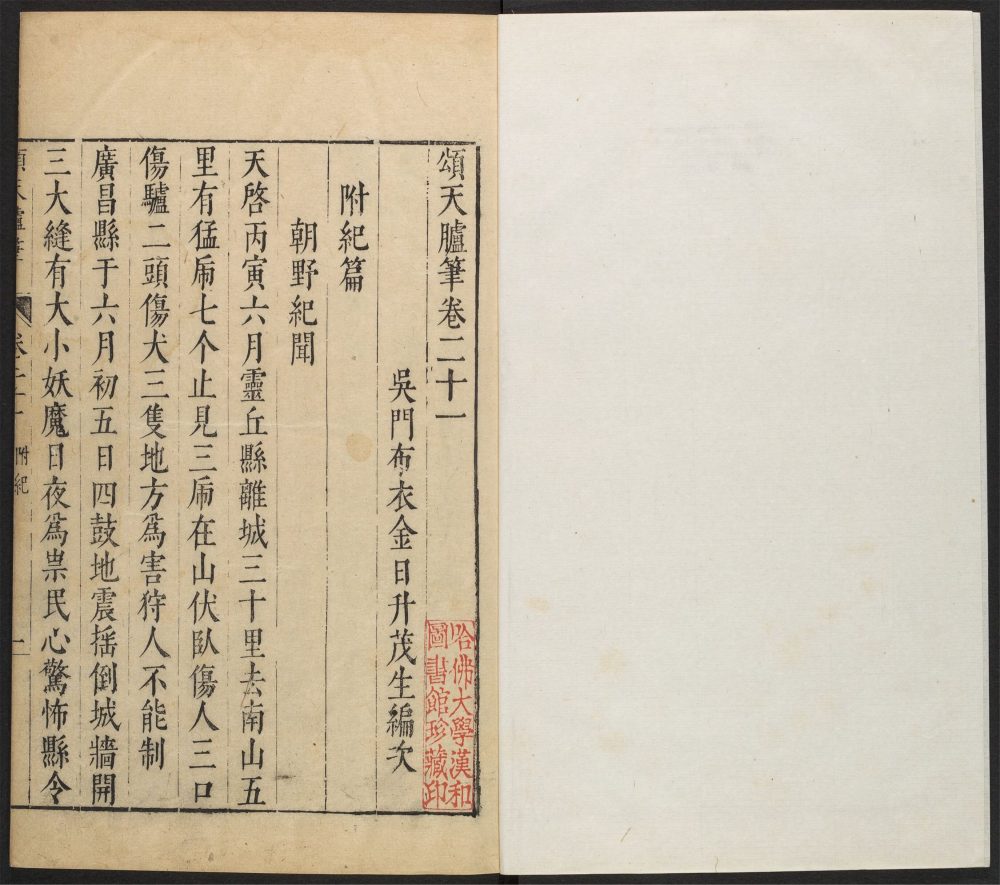 頌天臚筆卷二十一
吳門布衣金日升茂生編次
附紀篇
朝野紀聞
天啓丙寅六月靈丘縣離城三十里去南山五
里有猛虎七个止見三虎在山伏臥傷人三口
傷驢二頭傷犬三隻地方爲害狩人不能制
廣昌縣于六月初五日四鼓地震搖倒城牆開
三大縫有大小妖魔日夜爲祟民心驚怖縣令
頌天臚筆 卷二十一 附紀 一
哈佛大學漢和
圖書館珍藏印